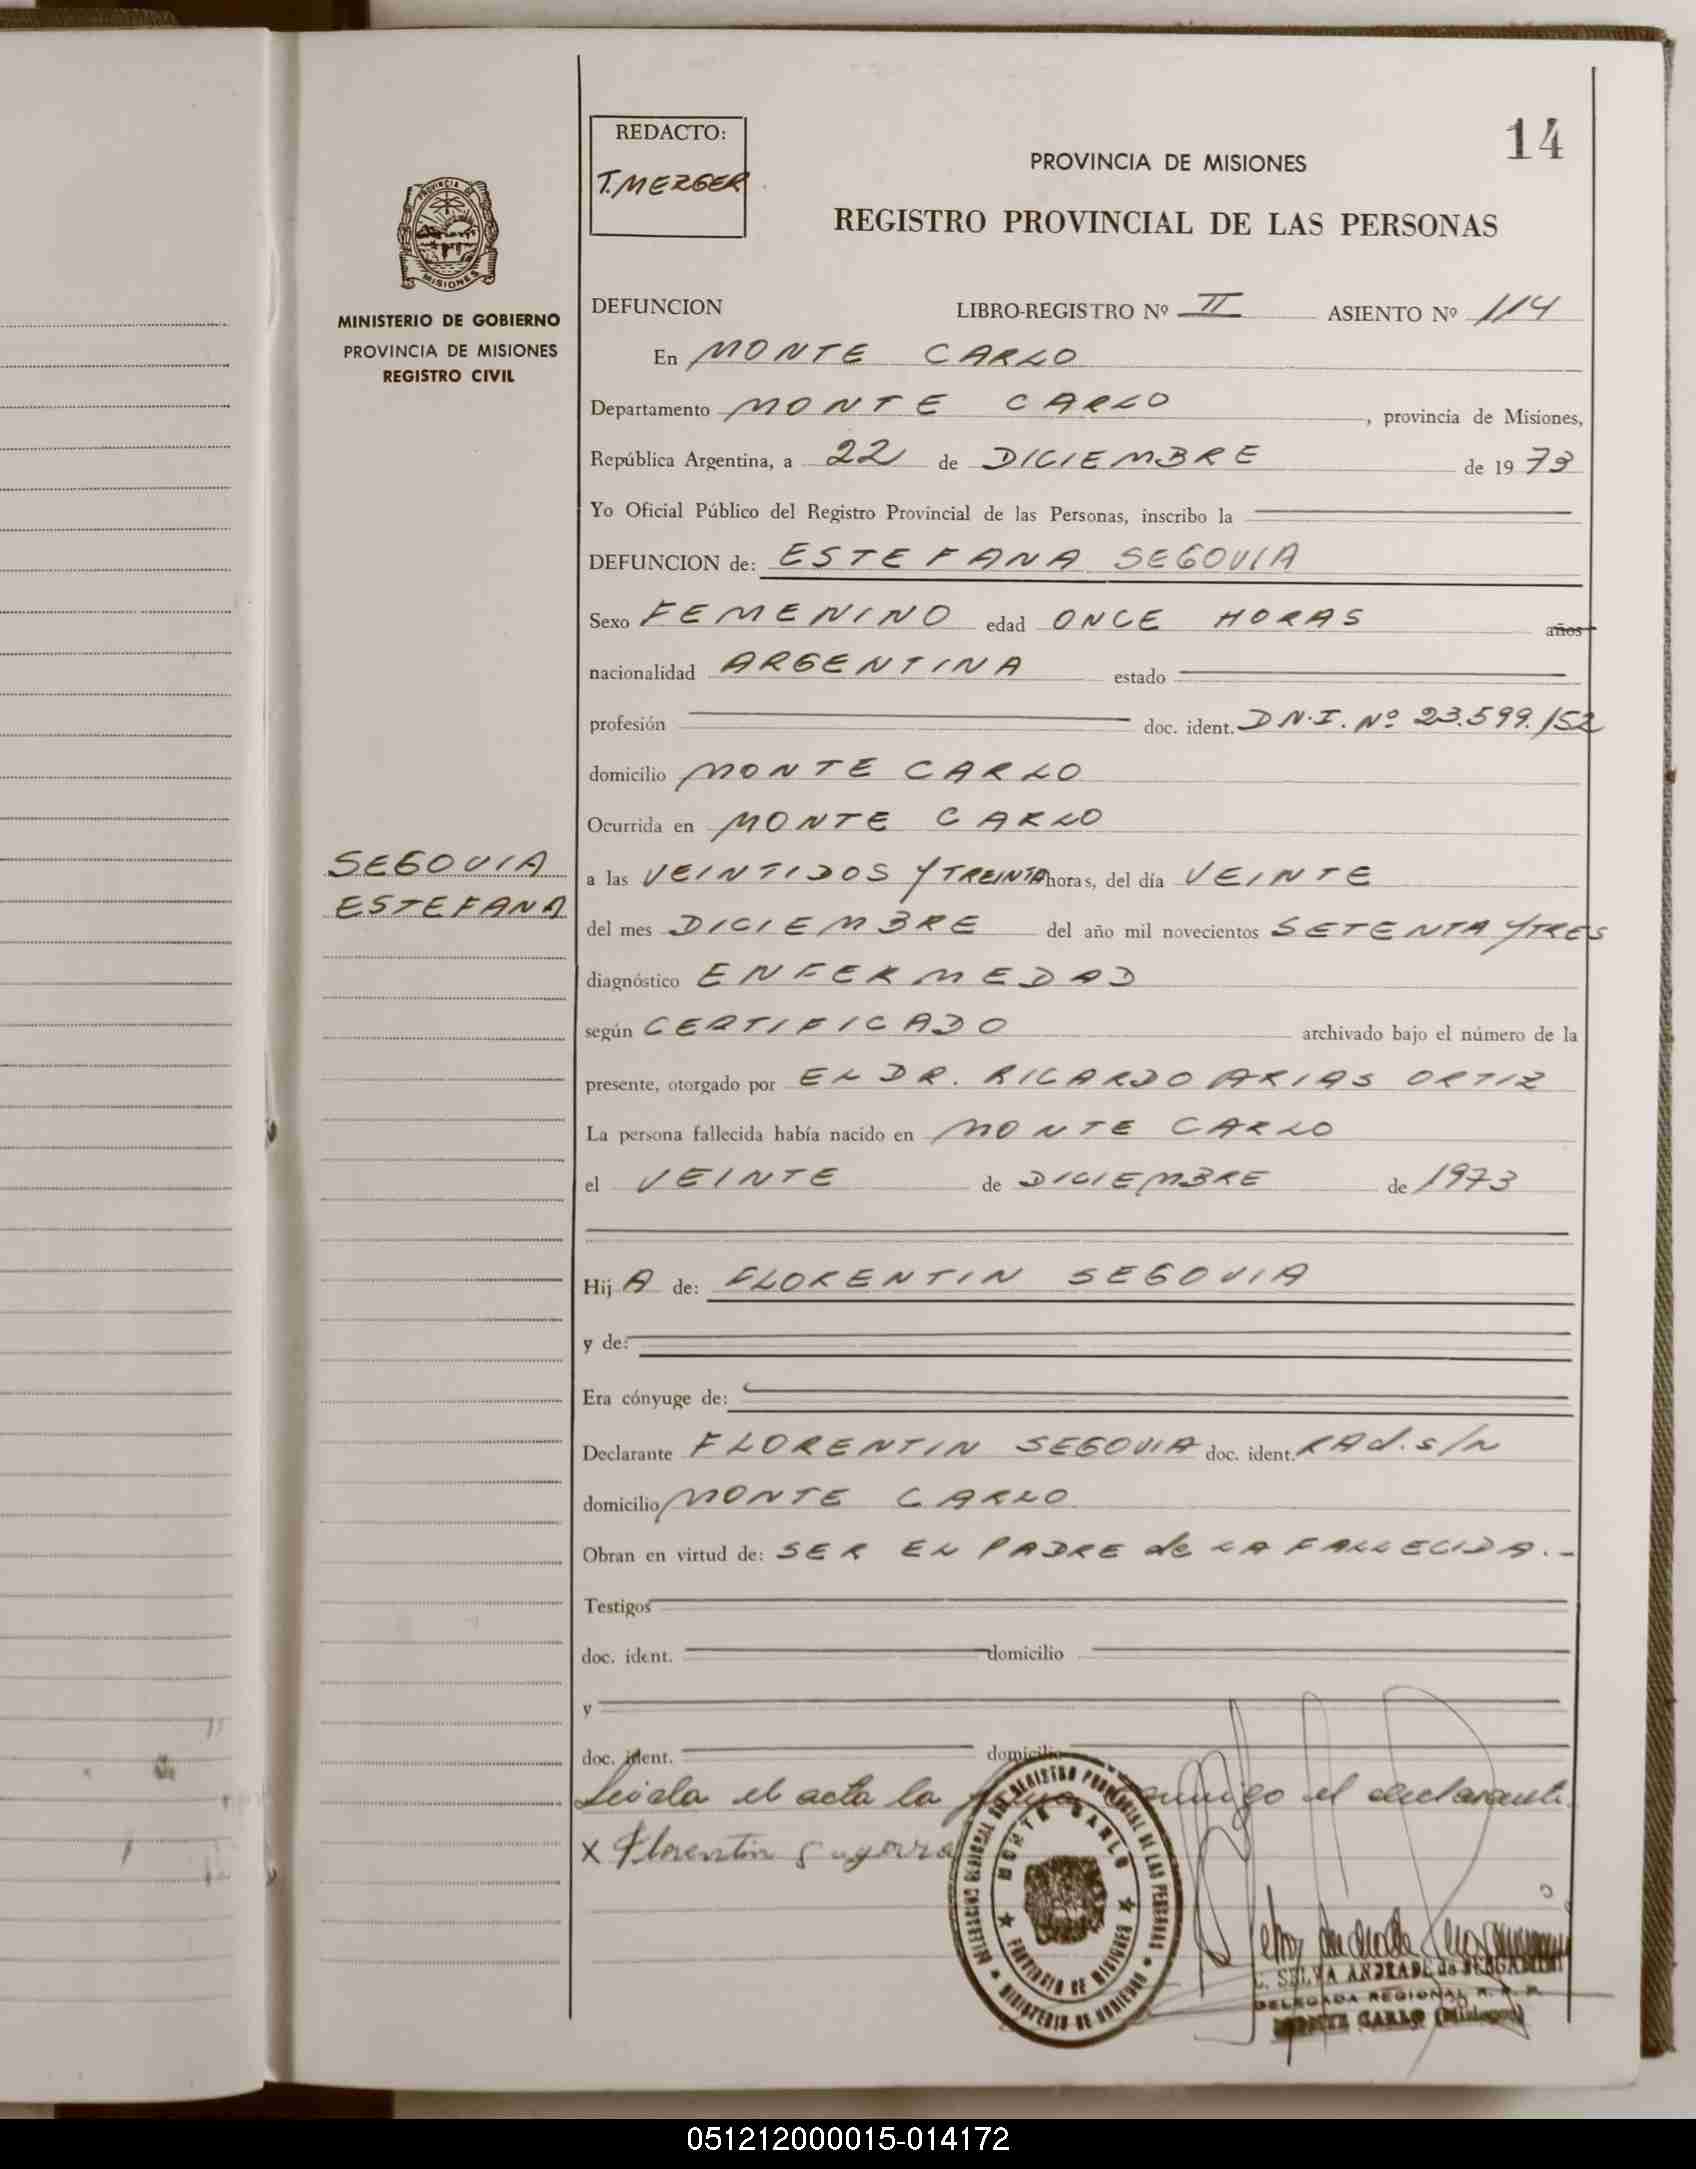 14
REDACTO:
T. MERGER
PROVINCIA DE MISIONES
REGISTRO PROVINCIAL DE LAS PERSONAS
PROVINCIA DE MISIONES
MINISTERIO DE GOBIERNO
PROVINCIA DE MISIONES
REGISTRO CIVIL
DEFUNCION LIBRO-REGISTRO Nº II ASIENTO Nº 114
En MONTE CARLO
Departamento MONTE CARLO, provincia de Misiones,
República Argentina, a 22 de DICIEMBRE de 1973
Yo Oficial Público del Registro Provincial de las Personas, inscribo la
DEFUNCION de: ESTEFANA SEGOVIA
Sexo FEMENINO edad ONCE HORAS años
nacionalidad ARGENTINA estado
profesión doc. ident. D.N.I. Nº 23.599.152
domicilio MONTE CARLO
Ocurrida en MONTE CARLO
SEGOVIA
ESTEFANA
a las VEINTIDOS Y TREINTA horas, del día VEINTE
del mes DICIEMBRE del año mil novecientos SETENTA Y TRES
diagnóstico ENFERMEDAD
según CERTIFICADO archivado bajo el número de la
presente, otorgado por EL DR. RICARDO ARIAS ORTIZ
La persona fallecida había nacido en MONTE CARLO
el VEINTE de DICIEMBRE de 1973
Hij A de: FLORENTIN SEGOVIA
y de:
Era cónyuge de:
Declarante FLORENTIN SEGOVIA doc. ident. RAd. s/n
domicilio MONTE CARLO
Obran en virtud de: SER EL PADRE de LA FALLECIDA.-
Testigos
doc. ident. domicilio
y
doc. ident. domicilio
Leida el acta la conmigo el declarante.
x Florentin
DELEGACION REGIONAL DEL REGISTRO PROVINCIAL DE LAS PERSONAS
MONTE CARLO
PROVINCIA DE MISIONES
MINISTERIO DE GOBIERNO
SELVA ANDRADE de
DELEGADA REGIONAL R. P. P.
MONTE CARLO (Misiones)
051212000015-014172